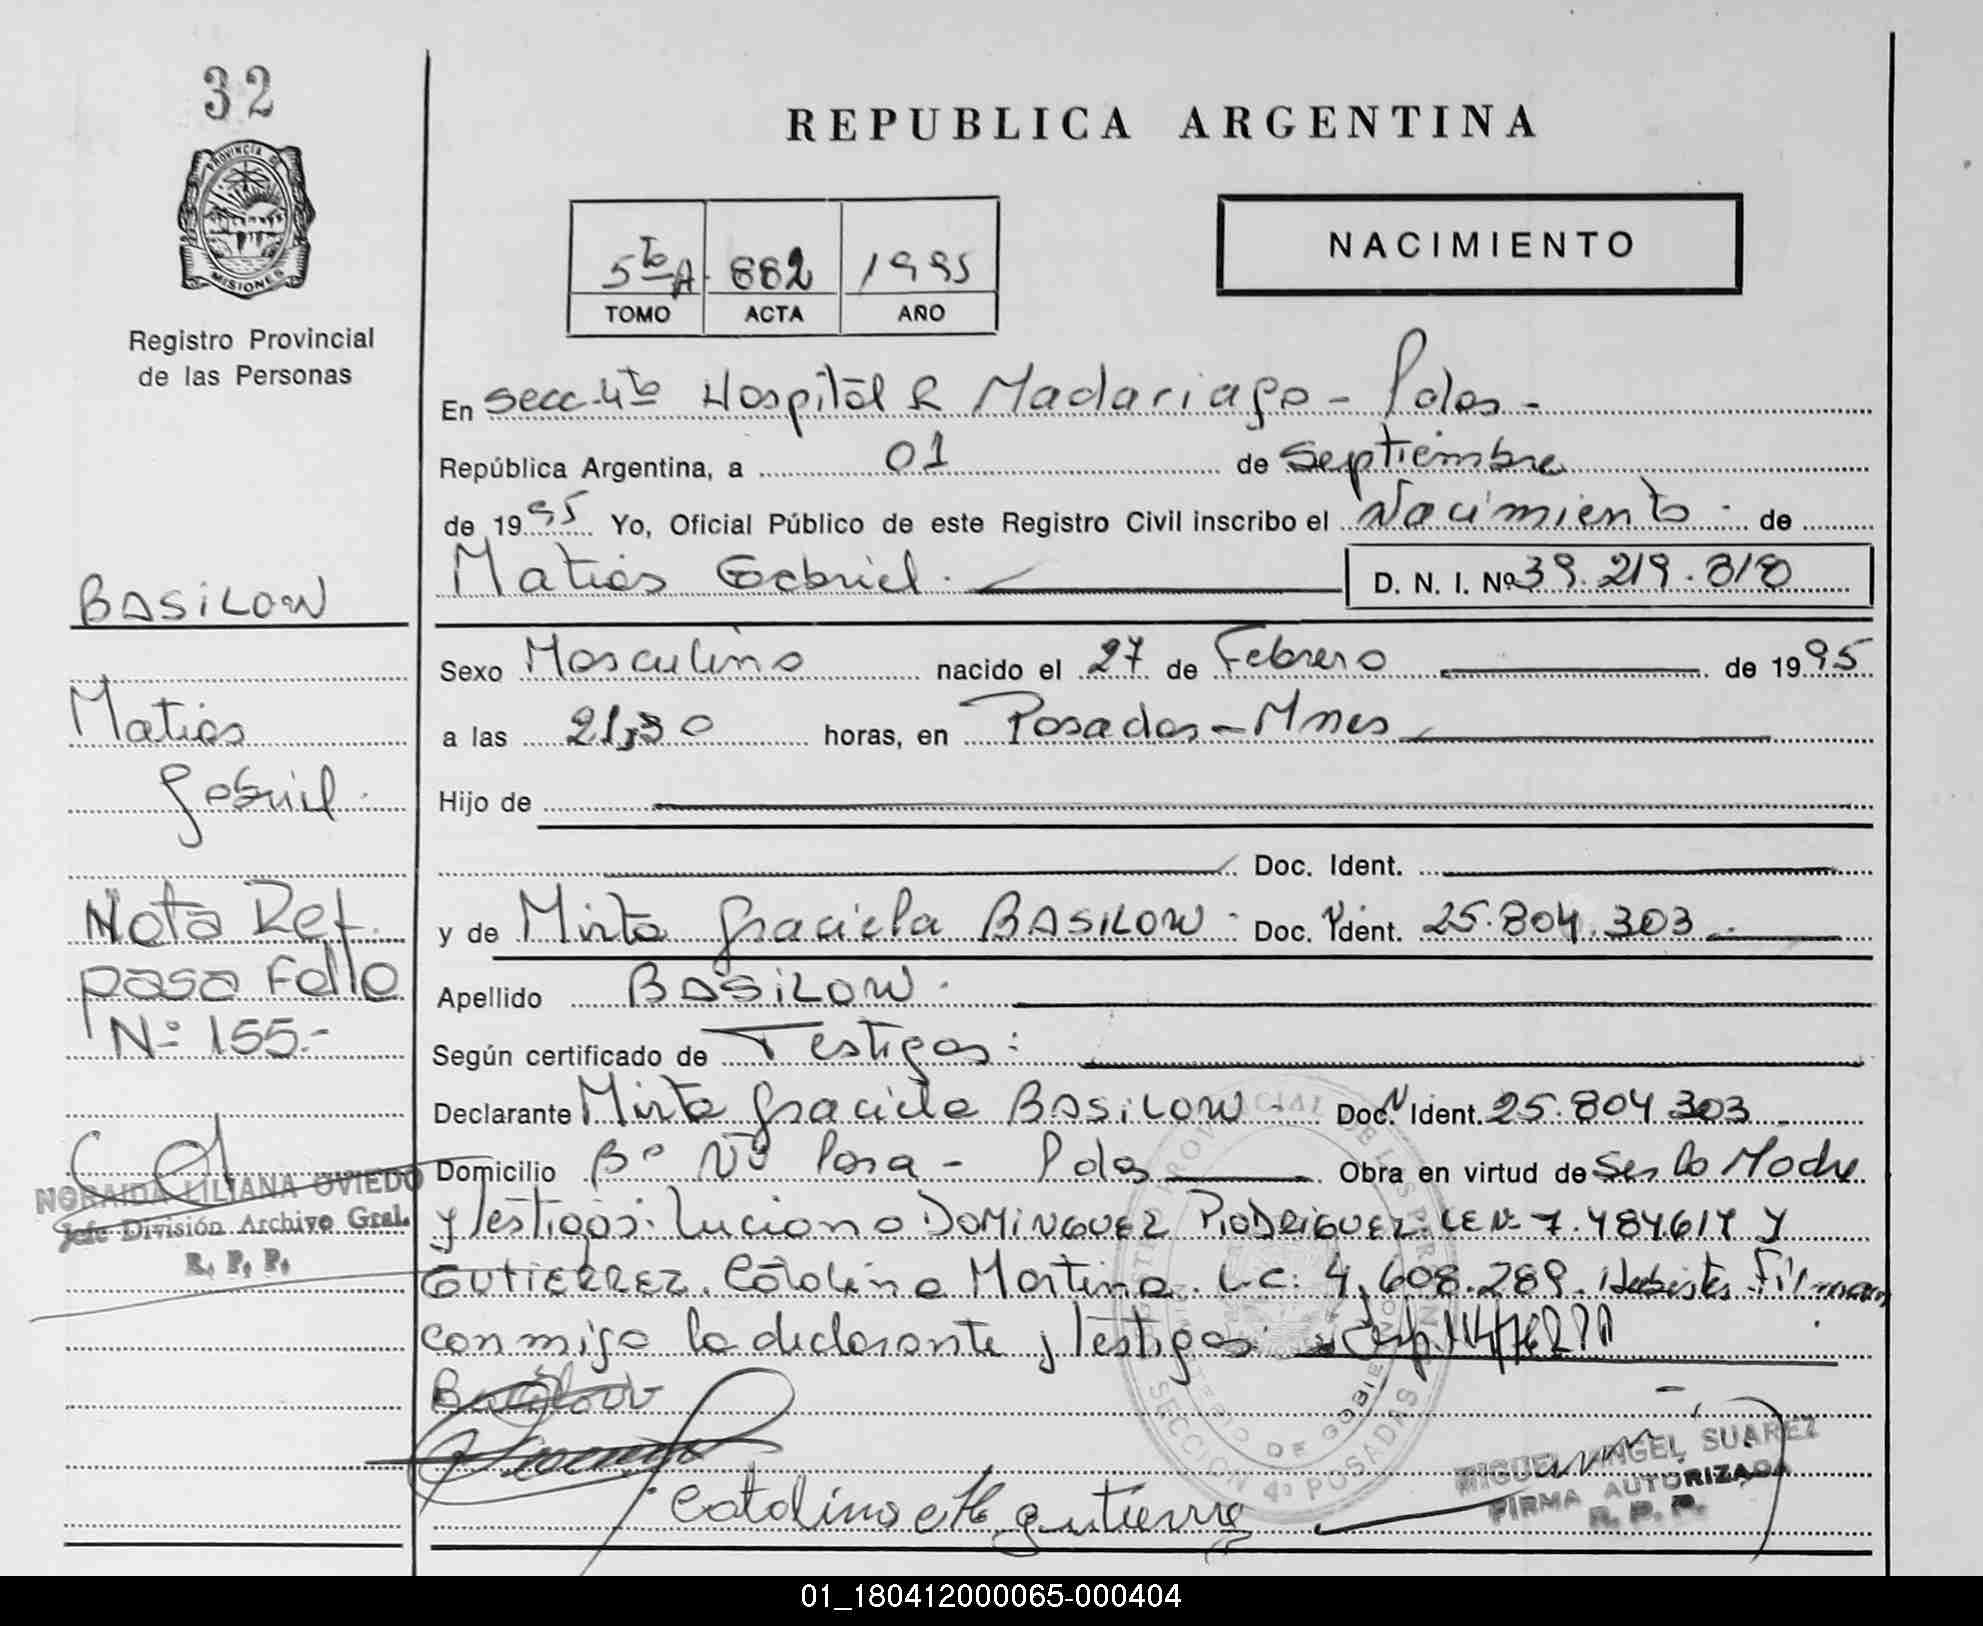 32
PROVINCIA DE
MISIONES
Registro Provincial
de las Personas
REPUBLICA ARGENTINA
5to A. 882 1995
TOMO ACTA AÑO
NACIMIENTO
En Secc-4ta Hospital R Madariaga - Pdas -
República Argentina, a 01 de Septiembre
de 1995 Yo, Oficial Público de este Registro Civil inscribo el Nacimiento - de
Matias Gabriel. D. N. I. Nº 39.219.818
Sexo Masculino nacido el 27 de Febrero de 1995
a las 21,30 horas, en Posadas - Mnes
Hijo de
Doc. Ident.
y de Mirta Graciela BASILOW - Doc. Ident. 25.804.303
Apellido BASILOW.
Según certificado de Testigos:
Declarante Mirta Graciela BASILOW - Doc. Ident. 25.804.303
Domicilio Bº Nº Posa - Pdas Obra en virtud de Ser la Madre
y Testigos: Luciano DOMINGUEZ RODRIGUEZ. LE Nº 7.484.617 y
GUTIERREZ. Catalina Martina. L.C. 4.608.289. Firman
conmigo la declarante y Testigos.
BASILOW
Matias
Gabriel.
Nota Ref.
pasa Folio
Nº 155.-
NORAIDA LILIANA OVIEDO
Jefe División Archivo Gral.
R. P. P.
Basilow
Catalina M. Gutierrez
SECCION 4ª POSADAS
MIGUEL ANGEL SUAREZ
FIRMA AUTORIZADA
R. P. P.
01_180412000065-000404